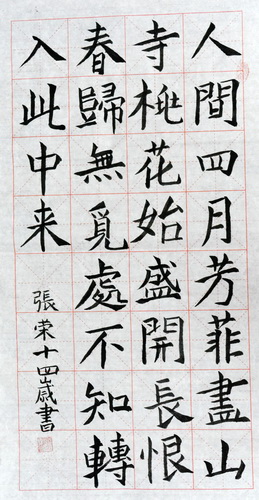 人間四月芳菲盡山
寺桃花始盛開長恨
春歸無覓處不知轉
入此中来
張荣十四歲書